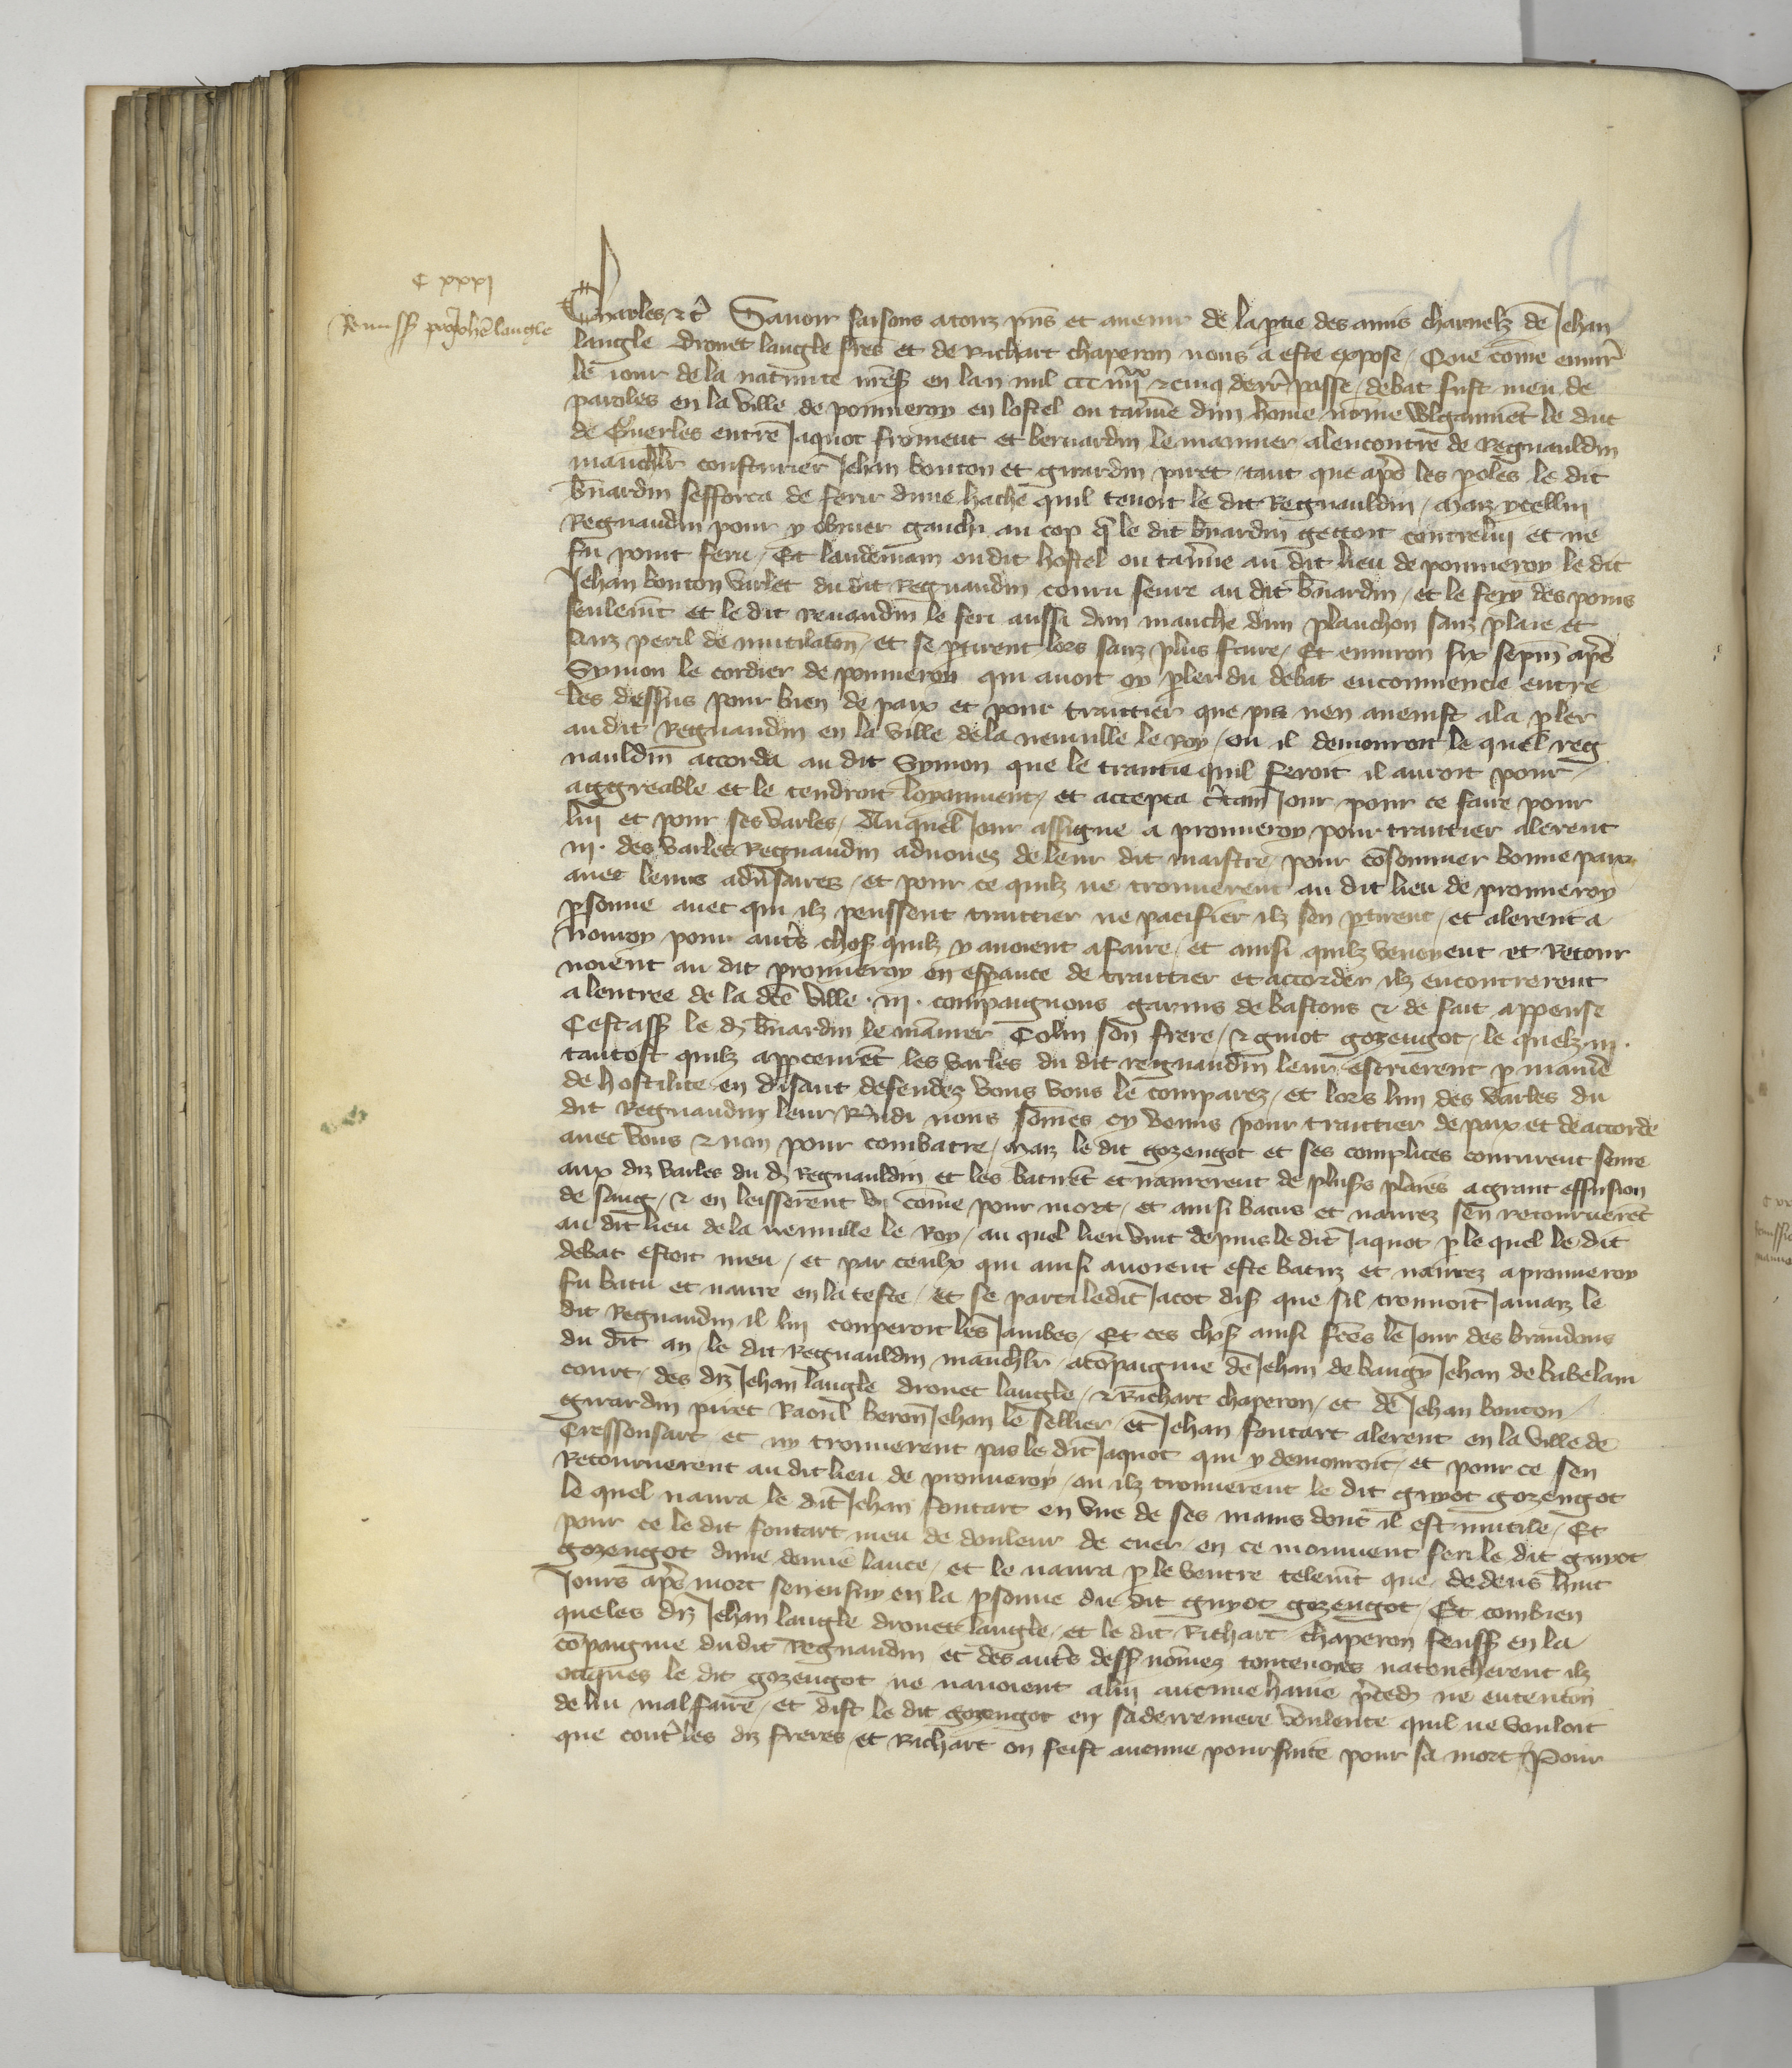 C xxxi
Remiss̃ pͬ Jehẽ langle
Charles &c̃ Savoir faisons a touz p̃ns et avenir de la ptie des amis charnelz de Jehan
langle Drouet langle fres et de Richart chaperon nous a este expose / Que cõme envirõ
le jour de la nativite nr̃e s̃ en lan mil ccc iiiixx & cinq derr̃ passe / debat fust meu de
paroles en la ville de ponnieroy en lostel ou tav̾ne dun hõme nõme le duc
de Guerles entre Jaquot froment et bernardin le mannier alencontre de Regnauldin
manchlr̃ cousturier Jehan bouton et girardin piret / tant que ap̃s les poles le dit
b̃nardin sefforca de ferir dune hache quil tenoit le dit Regnauldin / Maiz ycellui
Regnaudin pour y obvier ganchi au cop q̃ le dit b̃nardin gettoit contre lui et ne
fu point feru / Et lendemain oudit hostel ou tav̾ne au dit lieu de ponnieroy le dit
Jehan bouton varlet du dit Regnaudin couru seure au dit b̃nardin / et le fery des poins
seulem̃t et le dit renaudin le feri aussi dun manche dun planchon sanz plaie et
sanz peril de mutilatõn / et se ptirent lors sanz plus faire / Et environ six sepm̃ ap̃s
Symon le cordier de ponneroy qui avoit oy pler du debat encommencie entre
les dessus pour bien de paix et pour traittier que pis nen avenist ala pler
au dit Regnaudin en la ville de la neuville le Roy / ou il demouroit le quel reg
nauldin accorda au dit Symon que le traittie quil feroit il auroit pour
aggreable et le tendroit loyaument / et accepta c̾tain Jour pour ce faire pour
lui et pour ses varles / Auquel Jour assigne a pronneroy pour traittier alerent
iii. des varles Regnaudin advouez de leur dit maistre pour cõsommer bonne paix
avec leurs adv̾saires / et pour ce quilz ne trouverent au dit lieu de pronneroy
psonne avec qui ilz peussent traittier ne pacifier ilz sen ptirent / et alerent a
noiroy pour aut̃s chos̃ quilz y avoient afaire / et ainsi quilz venoyent et Retour
noient au dit pronneroy en esperance de traittier et accorder ilz encontrerent
a lentree de la dce ville . iii . compaignons garnis de bastons & de fait appense
Cestass̃ le d̃ b̃nardin le mãnier Colin son frere / & guiot gozengot / le quelz iii.
tantost quilz appceurẽt les varles du dit regnaudin leur escrierent p manie
de hostilite en disant defendez vous vous le comparez / et lors lun des varles du
dit Regnaudin leur Rñdi nous sõmes cy venus pour traittier de paix et de accorde
avec vous & non pour combatre / Maiz le dit gozengot et ses complices coururent seure
aux diz varles du d̃ Regnauldin et les batirẽt et navrerent de plus̃s plaies a grant effusion
de sang / & en leisserent un cõme pour mort / et ainsi batus et navrez sen retournerẽt
au dit lieu de la neuville le Roy / au quel lieu vint depuis le dit Jaquot p le quel le dit
debat estoit meu / et par ceulx qui ainsi avoient este batuz et navrez a pronneroy
fu batu et navre en la teste / et se parti ledit Jacot dis̃ que sil trouvoit Jamaiz le
dit Regnaudin il lui couperoit les Jambes / Et ces chos̃ ainsi fces le Jour des brandons
du dit an / le dit Regnauldin manchlr̃ acõpaignie de Jehan de baugy Jehan de babelain
court / des diz Jehan langle drouet langle / & Richart chaperon / et de Jehan bouton
girardin piret Raoul beron Jehan le sellier et Jehan foutart alerent en la ville de
Cressonsart / et ny trouverent pas le dit Jaquot qui y demouroit / et pour ce sen
Retournerent au dit lieu de pronneroy / ou ilz trouverent le dit guyot gozengot
le quel navra le dit Jehan foutart en une de ses mains dont il est mutile / Et
pour ce le dit foutart meu de douleur de cuer en ce mouvent feri le dit guyot
gozengot dune demie lance / et le navra p le ventre telem̃t que dedens huit
Jours ap̃s mort sen ensuy en la psonne du dit guyot gozengot / Et combien
que les diz Jehan langle drouet langle / et le dit Richart chaperon feuss̃ en la
cõpaignie du dit Regnaudin et des aut̃s dess̃ nõmez toutevoies natoucherent ilz
oncques le dit gozengot ne navoient a lui aucune haine p̃ced̃ ne entenciõn
de lui mal faire / et dist le dit gozengot en sa derreniere voulente quil ne vouloit
que cont̃ les diz freres et Richart on feist aucune poursuite pour sa mort / Pour